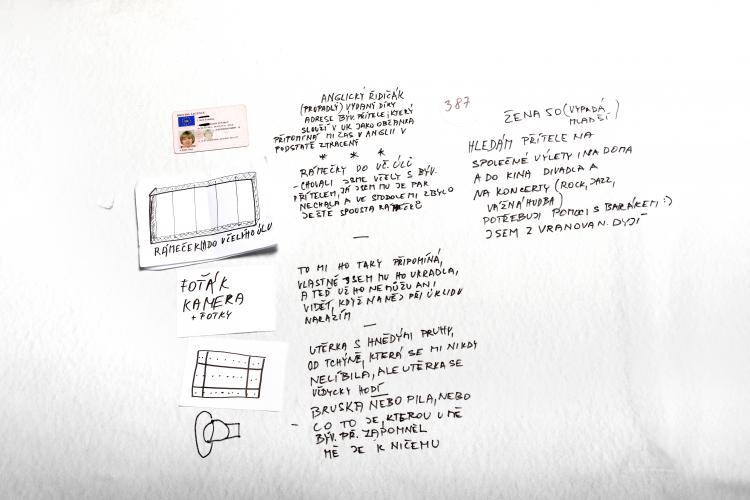 ANGLICKÝ ŘIDIČÁK
(PROPADLÝ) VYDANÝ DÍKY
ADRESE BÝV. PŘÍTELE, KTERÝ
SLOUŽÍ V UK JAKO OBČANKA
PŘIPOMÍNÁ MI ČAS V ANGLII V
PODSTATĚ ZTRACENÝ
* * *
RÁMEČKY DO VČ. ÚLŮ
- CHOVALI JSME VČELY S BÝV.
PŘÍTELEM, JÁ JSEM MU JE PAK
NECHALA A VE STODOLE MI ZBYLO
JEŠTĚ SPOUSTA RÁMEČKŮ
RÁMEČEK DO VČELÍHO ÚLU
—
FOŤÁK
KAMERA
+ FOTKY
TO MI HO TAKY PŘIPOMÍNÁ,
VLASTNĚ JSEM MU HO UKRADLA,
A TEĎ UŽ HO NEMŮŽU ANI
VIDĚT, KDYŽ NA NĚJ PŘI ÚKLIDU
NARAZÍM
—
UTĚRKA S HNĚDÝMI PRUHY,
OD TCHÝNĚ, KTERÁ SE MI NIKDY
NELÍBILA, ALE UTĚRKA SE
VŽDYCKY HODÍ
- BRUSKA NEBO PILA, NEBO
CO TO JE, KTEROU U MĚ
BÝV. PŘ. ZAPOMNĚL
MĚ JE K NIČEMU
387
ŽENA 50 (VYPADÁ
MLADŠÍ)
HLEDÁM PŘÍTELE NA
SPOLEČNÉ VÝLETY I NA DOMA
A DO KINA DIVADLA A
NA KONCERTY (ROCK, JAZZ,
VÁŽNÁ HUDBA)
POTŘEBUJI POMOCI S BARÁKEM :)
JSEM Z VRANOVA N. DYJÍ